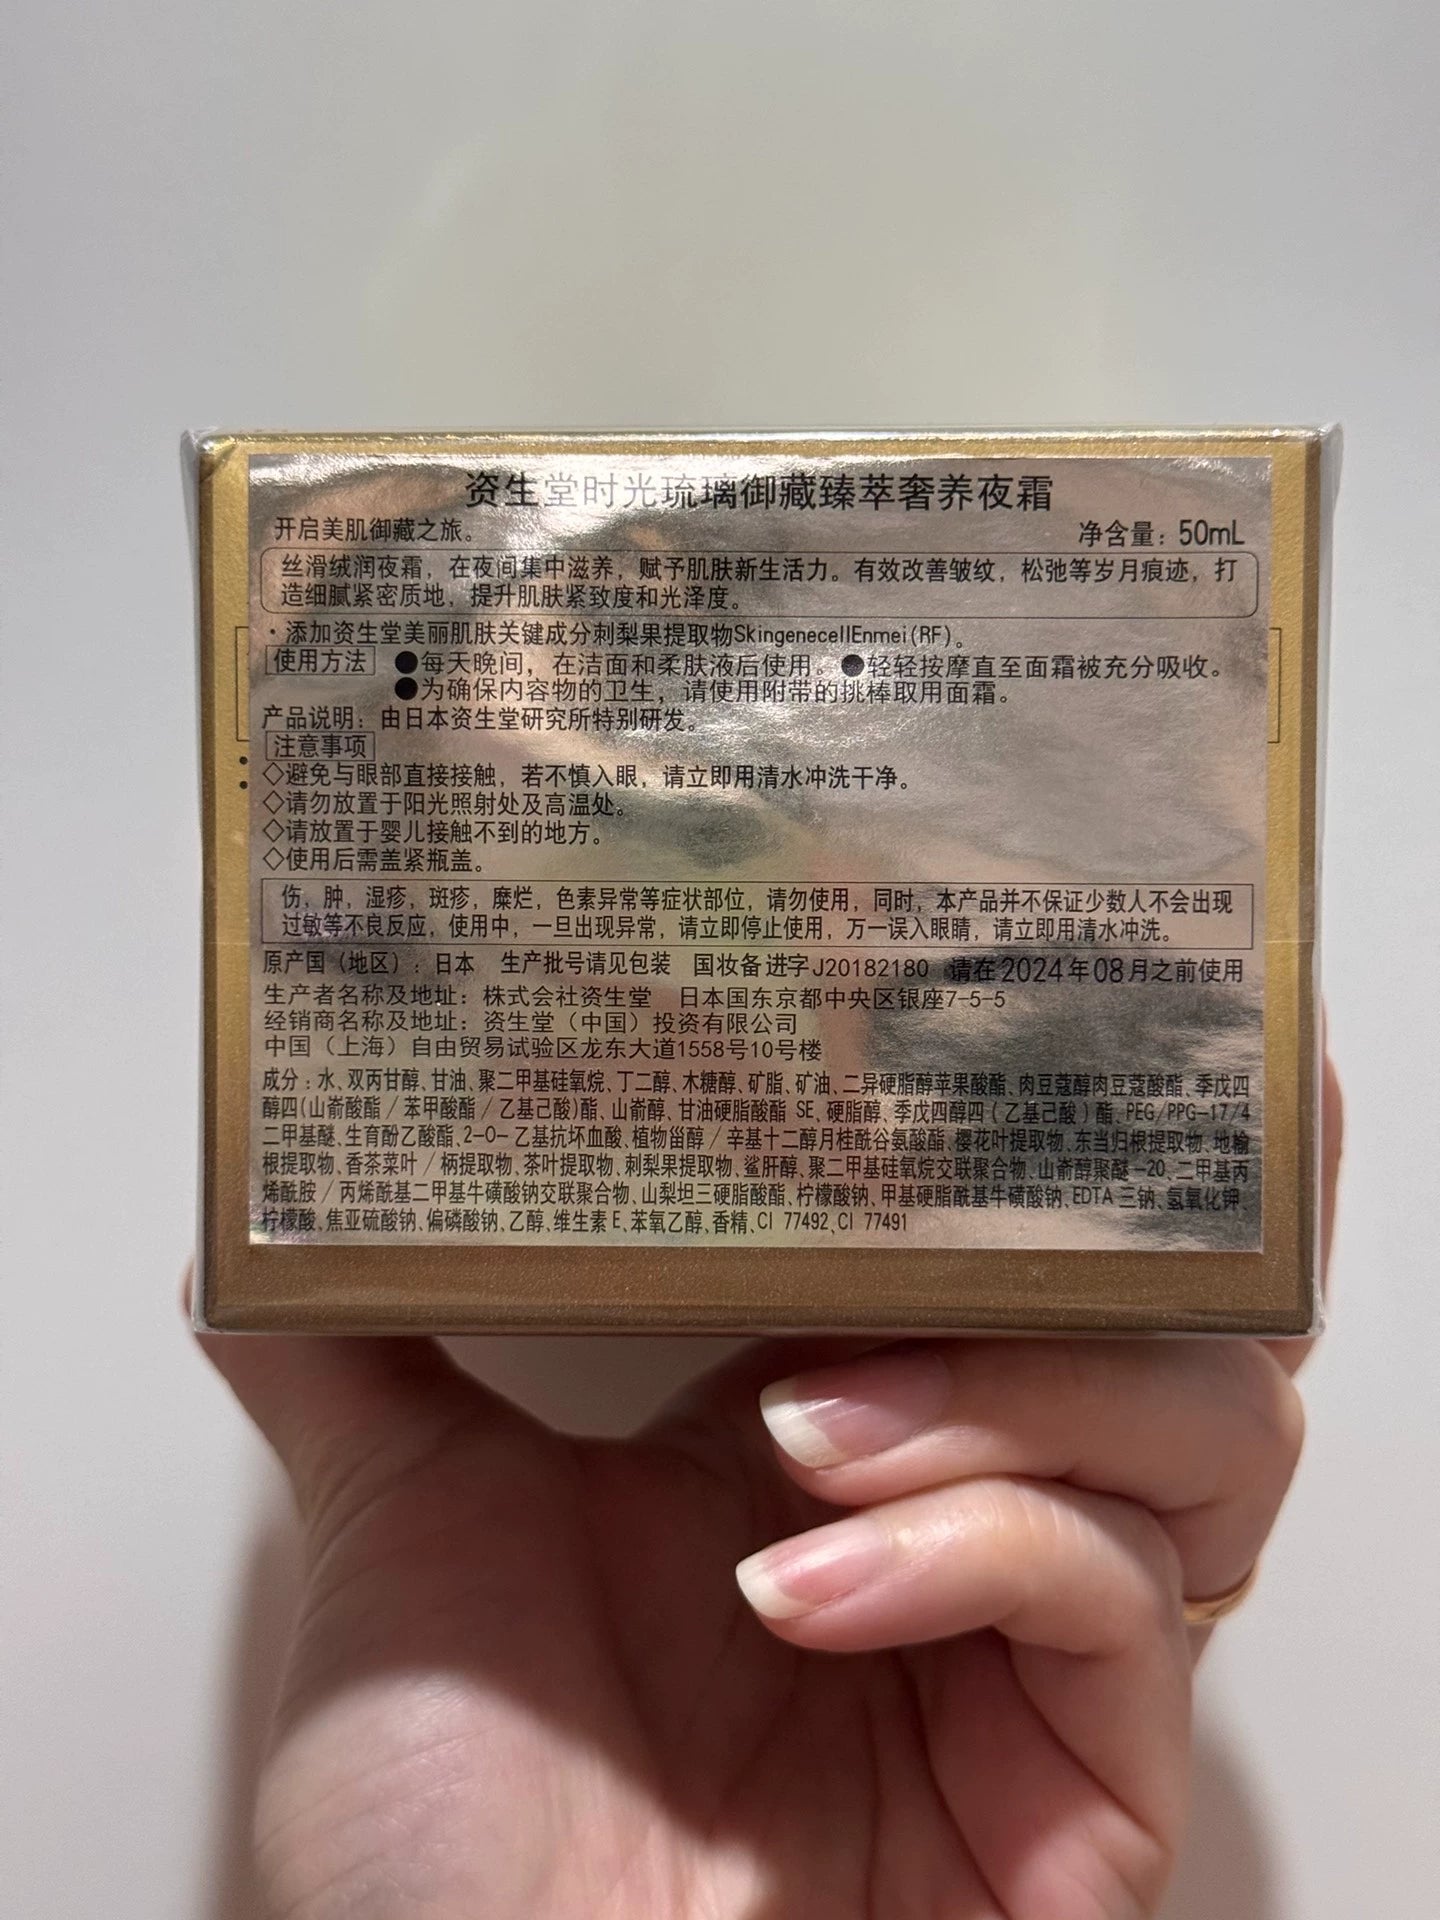 资生堂时光琉璃御藏臻萃奢养夜霜
开启美肌御藏之旅。 净含量：50mL
丝滑绒润夜霜，在夜间集中滋养，赋予肌肤新生活力。有效改善皱纹，松弛等岁月痕迹，打
造细腻紧密质地，提升肌肤紧致度和光泽度。
・添加资生堂美丽肌肤关键成分刺梨果提取物SkingenecellEnmei(RF)。
使用方法 ●每天晚间，在洁面和柔肤液后使用。●轻轻按摩直至面霜被充分吸收。
●为确保内容物的卫生，请使用附带的挑棒取用面霜。
产品说明：由日本资生堂研究所特别研发。
注意事项
◇避免与眼部直接接触，若不慎入眼，请立即用清水冲洗干净。
◇请勿放置于阳光照射处及高温处。
◇请放置于婴儿接触不到的地方。
◇使用后需盖紧瓶盖。
伤，肿，湿疹，斑疹，糜烂，色素异常等症状部位，请勿使用，同时，本产品并不保证少数人不会出现
过敏等不良反应，使用中，一旦出现异常，请立即停止使用，万一误入眼睛，请立即用清水冲洗。
原产国（地区）：日本 生产批号请见包装 国妆备进字J20182180 请在2024年08月之前使用
生产者名称及地址：株式会社资生堂 日本国东京都中央区银座7-5-5
经销商名称及地址：资生堂（中国）投资有限公司
中国（上海）自由贸易试验区龙东大道1558号10号楼
成分：水、双丙甘醇、甘油、聚二甲基硅氧烷、丁二醇、木糖醇、矿脂、矿油、二异硬脂醇苹果酸酯、肉豆蔻醇肉豆蔻酸酯、季戊四
醇四(山嵛酸酯/苯甲酸酯/乙基己酸)酯、山嵛醇、甘油硬脂酸酯 SE、硬脂醇、季戊四醇四(乙基己酸)酯、PEG/PPG-17/4
二甲基醚、生育酚乙酸酯、2-O-乙基抗坏血酸、植物甾醇/辛基十二醇月桂酰谷氨酸酯、樱花叶提取物、东当归根提取物、地榆
根提取物、香茶菜叶/柄提取物、茶叶提取物、刺梨果提取物、鲨肝醇、聚二甲基硅氧烷交联聚合物、山嵛醇聚醚-20、二甲基丙
烯酰胺/丙烯酰基二甲基牛磺酸钠交联聚合物、山梨坦三硬脂酸酯、柠檬酸钠、甲基硬脂酰基牛磺酸钠、EDTA 三钠、氢氧化钾、
柠檬酸、焦亚硫酸钠、偏磷酸钠、乙醇、维生素E、苯氧乙醇、香精、CI 77492、CI 77491